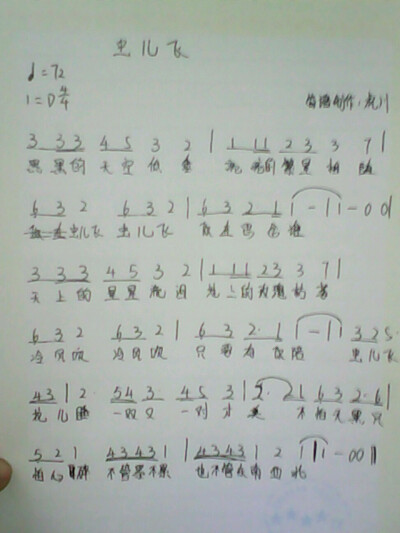 虫儿飞
♩=72
1=D 4/4 简谱制作:
3 3 3 4 5 3 2 | 1 1 1 2 3 3 7 |
黑黑的天空低垂 亮亮的繁星相随
6 3 2 6 3 2 | 6 3 2 1 1 - | 1 - 0 0 |
虫儿飞 虫儿飞 你在思念谁
3 3 3 4 5 3 2 | 1 1 1 2 3 3 7 |
天上的星星流泪 地上的玫瑰枯萎
6 3 2 6 3 2 | 6 3 2· 1 1 - | 1 3 2 5·
冷风吹 冷风吹 只要有你陪 虫儿飞
4 3 1 2· 5 4 3· 4 5 3 | 2· 2 1 6 3 2· 6 |
花儿睡 一双又一对才美 不怕天黑只
5 2 1 4 3 4 3 1 | 4 3 4 3 1 2 1 | 1 - 0 0 ‖
怕心碎 不管累不累 也不管东南西北